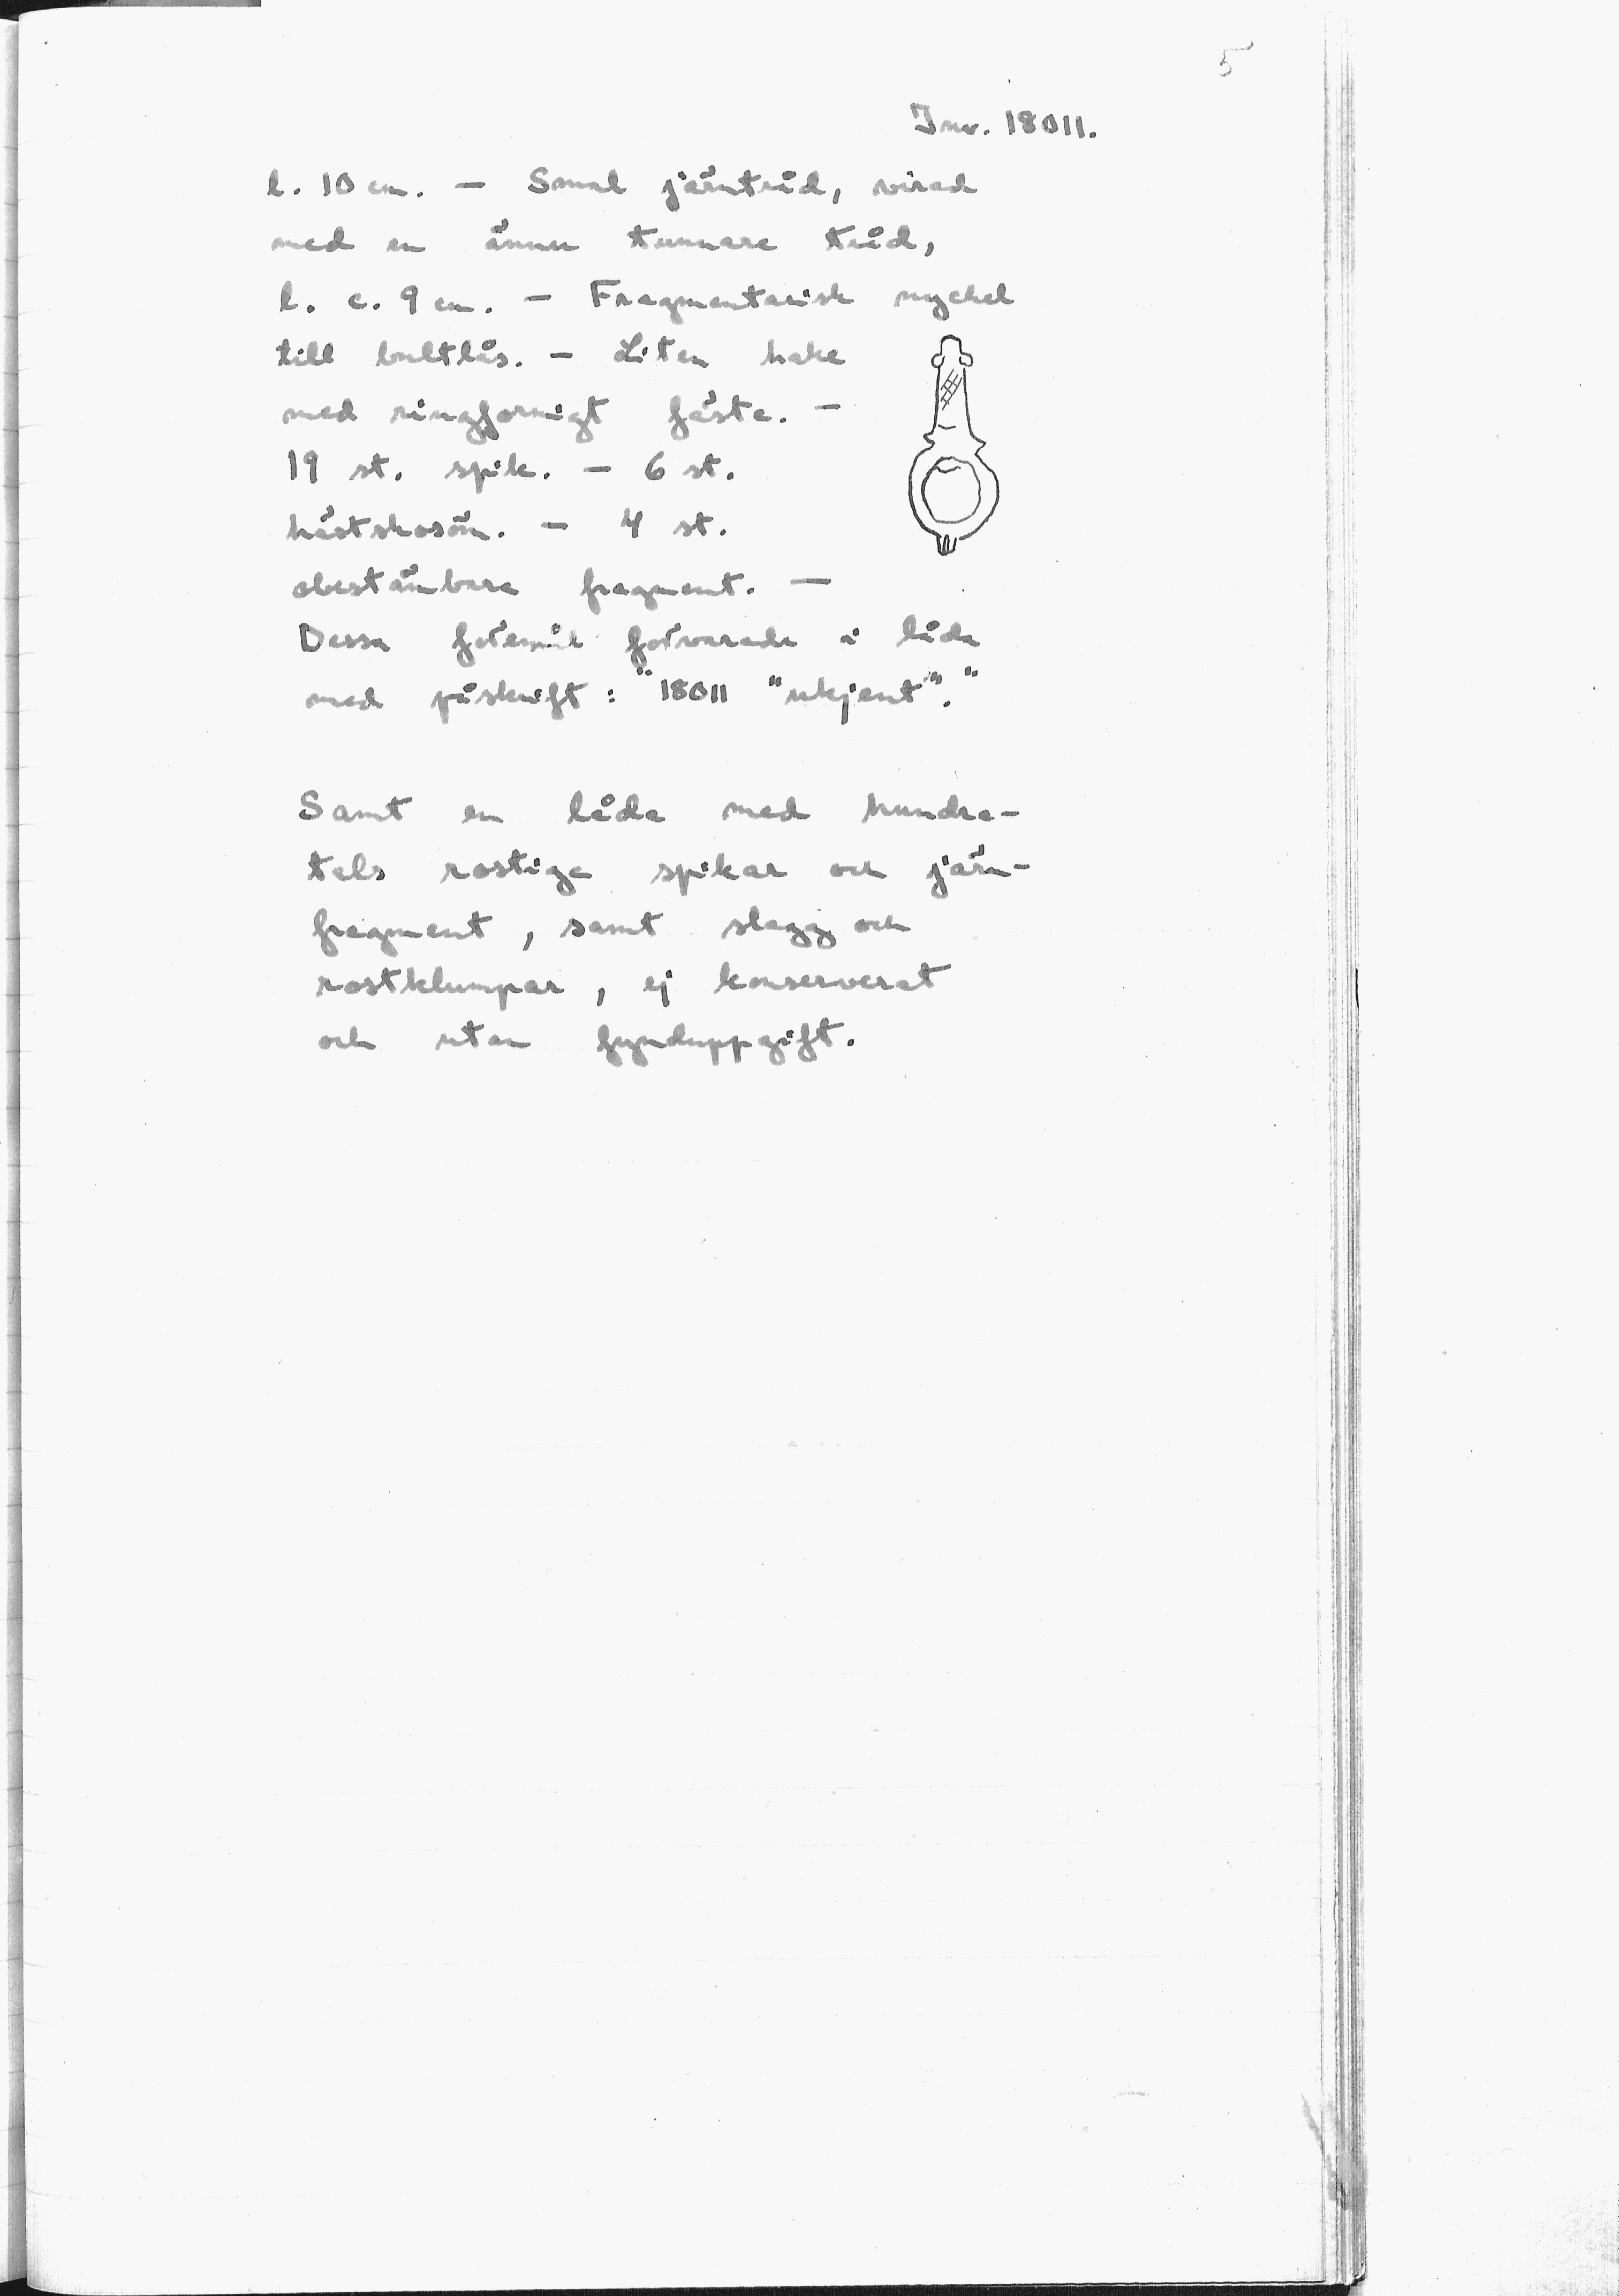 5
Inv. 18011.
l. 10 cm. — Smal järntråd, virad
med en ännu tunnare tråd,
l. c. 9 cm. — Fragmentarisk nyckel
till bultlås. — Liten hake
med ringformigt fäste. —
19 st. spik. — 6 st.
hästskosöm. — 4 st.
obestämbara fragment. —
Dessa föremål förvarade i låda
med påskrift: "18011 "ukjent"."
Samt en låda med hundra-
tals rostiga spikar och järn-
fragment, samt slagg och
rostklumpar, ej konserverat
och utan fynduppgift.